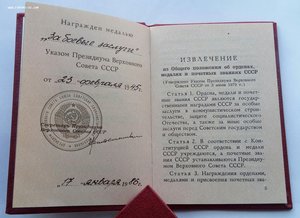 Награжден медалью
„За боевые заслуги"
Указом Президиума Верховного
Совета СССР
от „23" февраля 1945г.
Верховного Совета СССР
„17" января 1986г.
ИЗВЛЕЧЕНИЕ
из Общего положения об орденах,
медалях и почетных званиях СССР
(Утверждено Указом Президиума Верховного
Совета СССР от 3 июля 1979 г.)
Статья 1. Ордена, медали и почет-
ные звания СССР являются формой
государственных наград за особые
заслуги в коммунистическом строи-
тельстве, защите социалистического
Отечества, а также за иные особые
заслуги перед Советским государством
и обществом.
Статья 2. В соответствии с Кон-
ституцией СССР ордена и медали
СССР учреждаются, а почетные зва-
ния СССР устанавливаются Президиу-
мом Верховного Совета СССР.
Статья 3. Награждение орденами,
медалями и присвоение почетных зва-